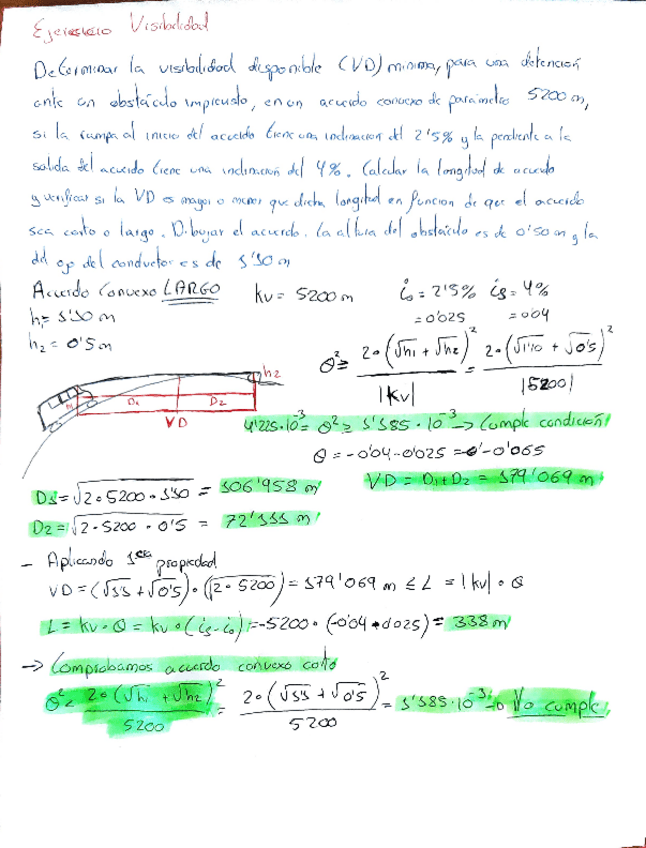 Ejercicio Visibilidad
Determinar la visibilidad disponible (VD) minima, para una detención
ante un obstáculo imprevisto, en un acuerdo convexo de parámetro 5200 m,
si la rampa al inicio del acuerdo tiene una inclinacion del 2'5% y la pendiente a la
salida del acuerdo tiene una inclinación del 4%. Calcular la longitud de acuerdo
y verificar si la VD es mayor o menor que dicha longitud en funcion de que el acuerdo
sea corto o largo. Dibujar el acuerdo. La altura del obstáculo es de 0'50 m y la
del ojo del conductor es de 1'10 m
Acuerdo Convexo LARGO kv = 5200 m i₀ = 2'5% is = 4%
h₁ = 1'10 m = 0'025 = 0'04
h₂ = 0'5 m
θ² ≥ 2·(√h1 + √h2)² / |kv| = 2·(√1'10 + √0'5)² / |5200|
h2
D₁ D₂
VD
4'225·10⁻³ = θ² ≥ 1'185·10⁻³ → Cumple condición
θ = -0'04-0'025 = -0'065
D1 = √2·5200·1'10 = 106'958 m
VD = D1+D2 = 179'069 m
D2 = √2·5200·0'5 = 72'111 m
- Aplicando 1era propiedad
VD = (√1'1 + √0'5)·(√2·5200) = 179'069 m ≤ L = |kv|·θ
L = kv·θ = kv·(is-i₀) = -5200·(-0'04+0'025) = 338 m
→ Comprobamos acuerdo convexo corto
θ² < 2·(√h1 + √h2)² / 5200 = 2·(√1'1 + √0'5)² / 5200 = 1'185·10⁻³ → No cumple